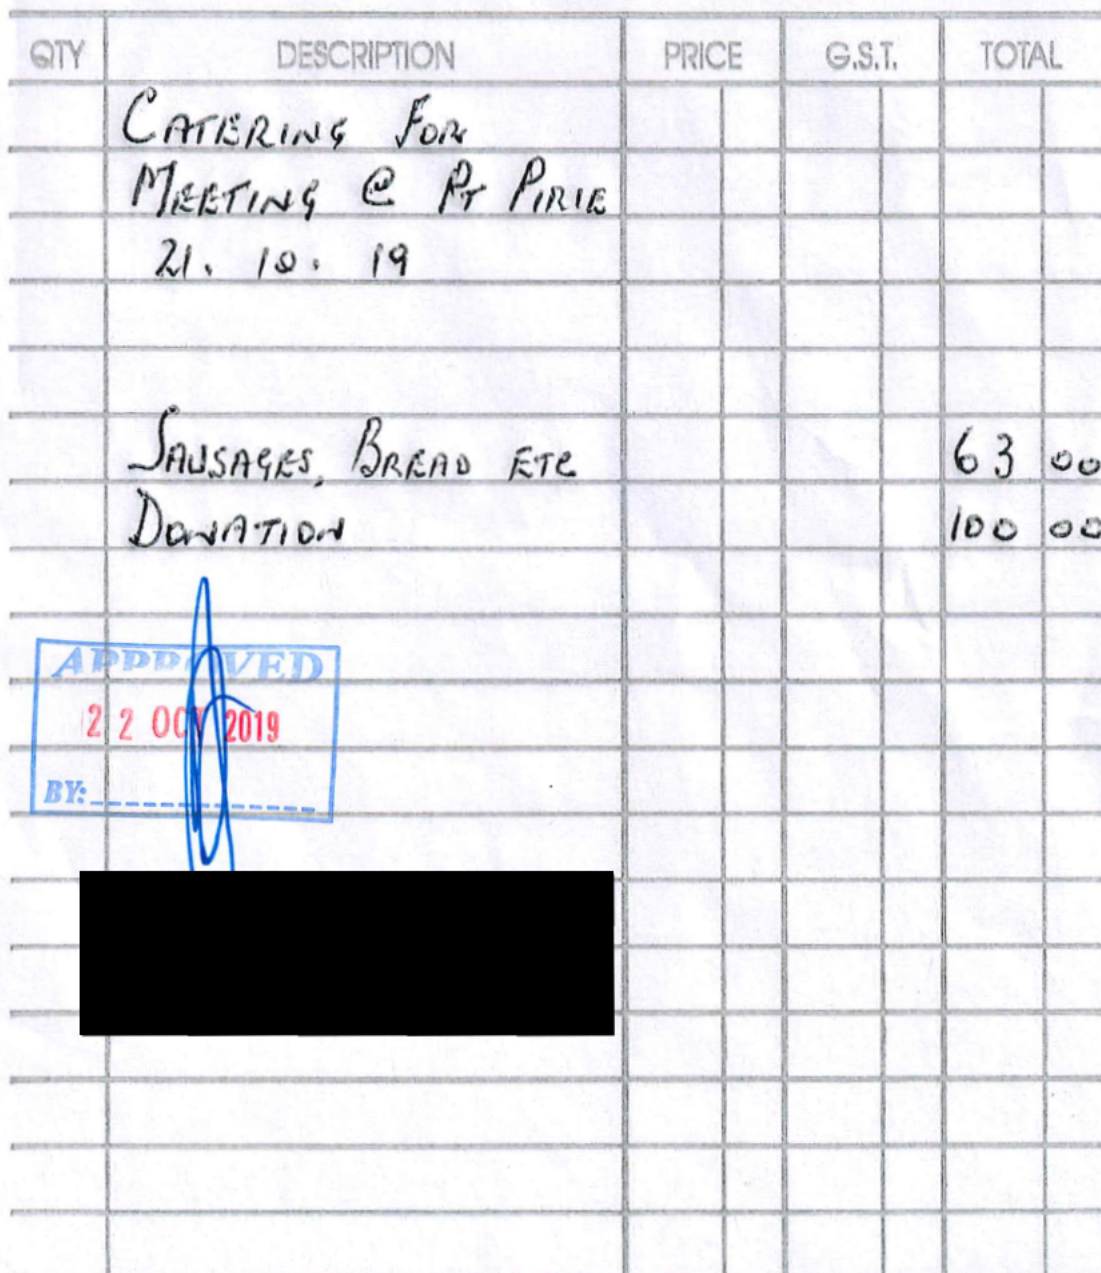 QTY DESCRIPTION PRICE G.S.T. TOTAL
CATERING FOR
MEETING @ PT PIRIE
21. 10. 19
SAUSAGES, BREAD ETC 63 00
DONATION 100 00
APPROVED
22 OCT 2019
BY: